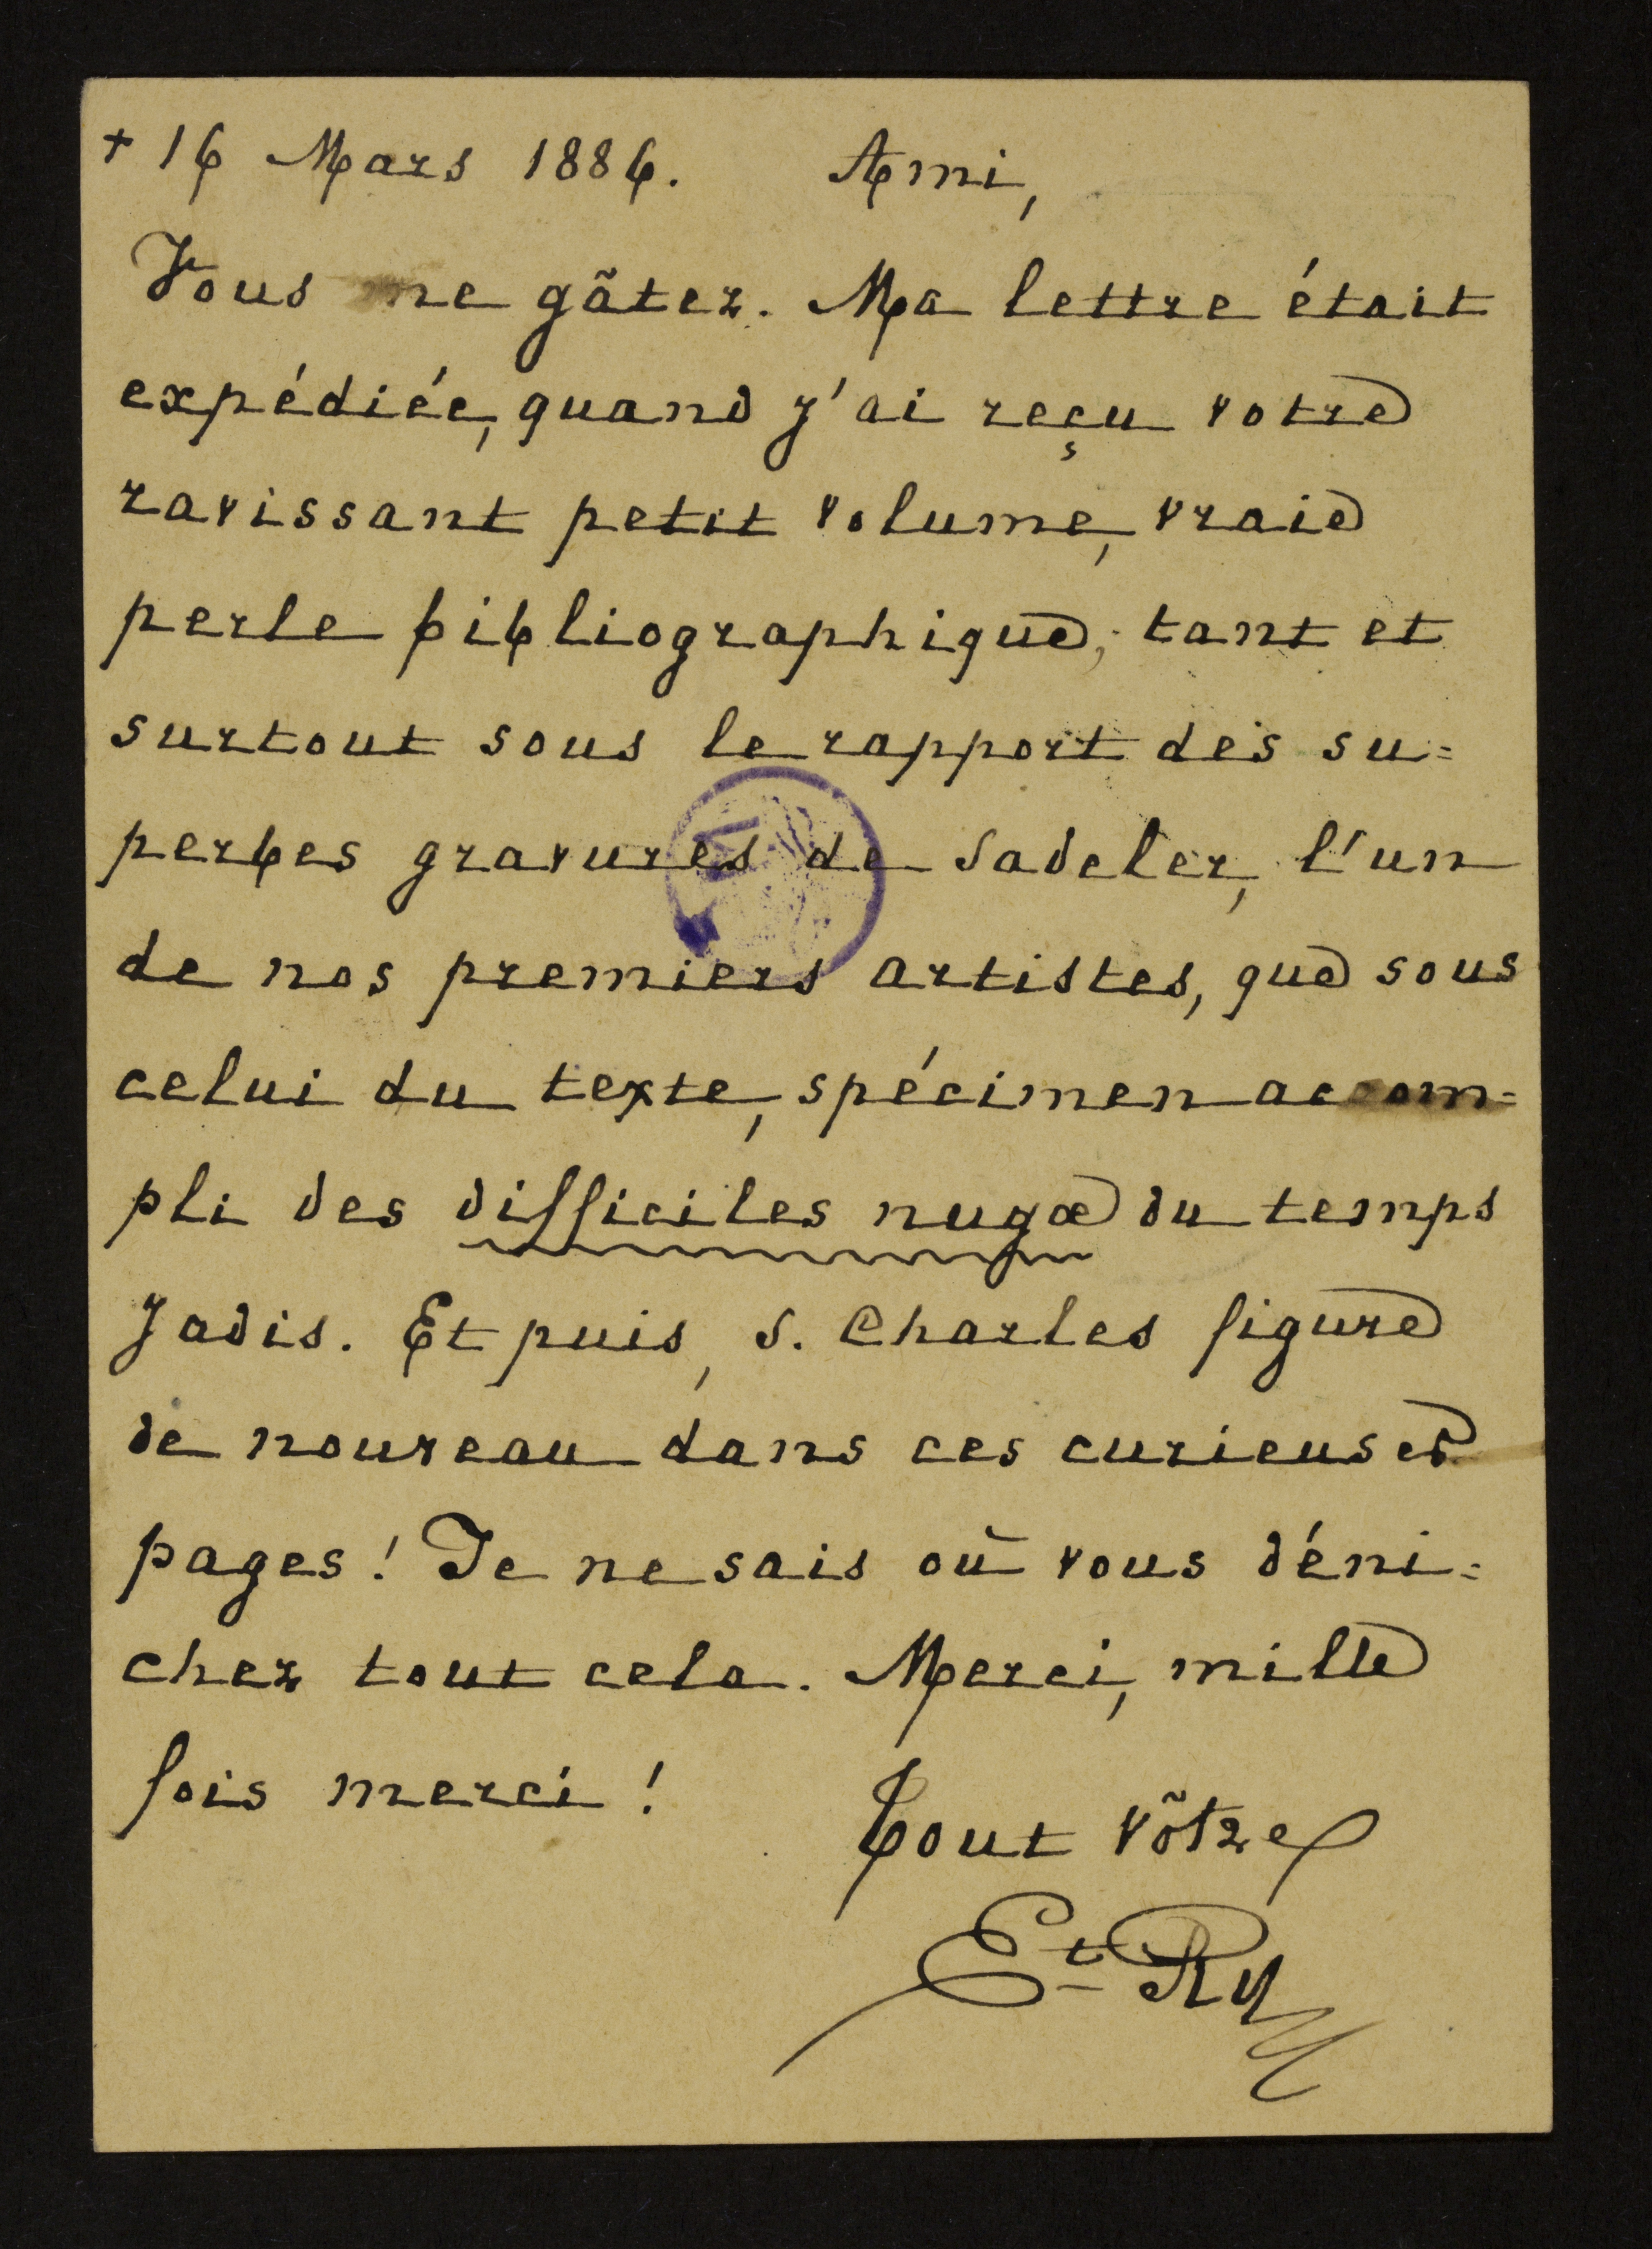 + 16 Mars 1886. Ami,
Vous me gâtez. Ma lettre était
expédiée, quand j'ai reçu votre
ravissant petit volume, vraie
perle bibliographique, tant et
surtout sous le rapport des su=
perbes gravures de Sadeler, l'un
de nos premiers artistes, que sous
celui du texte, spécimen accom=
pli des difficiles nugæ du temps
jadis. Et puis, S. Charles figure
de nouveau dans ces curieuses
pages! Je ne sais où vous déni=
chez tout cela. Merci, mille
fois merci!
Tout vôtre
Et. Ry